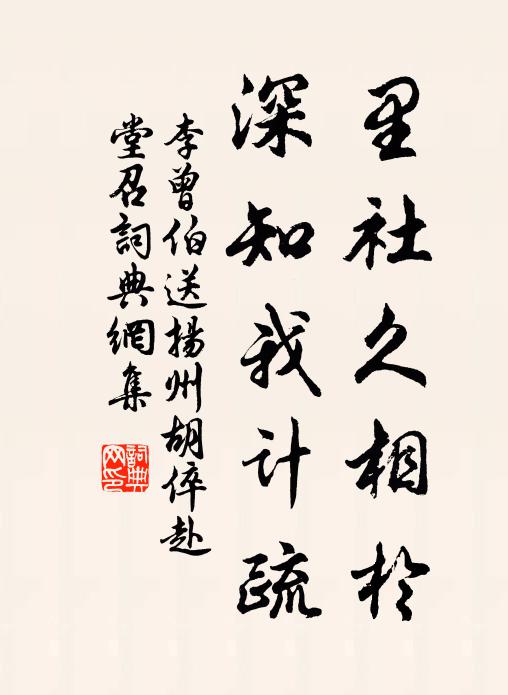 里社久相於
深知我计疏
李曾伯送揚州胡倅赴
堂召詞典網集
詞典网印